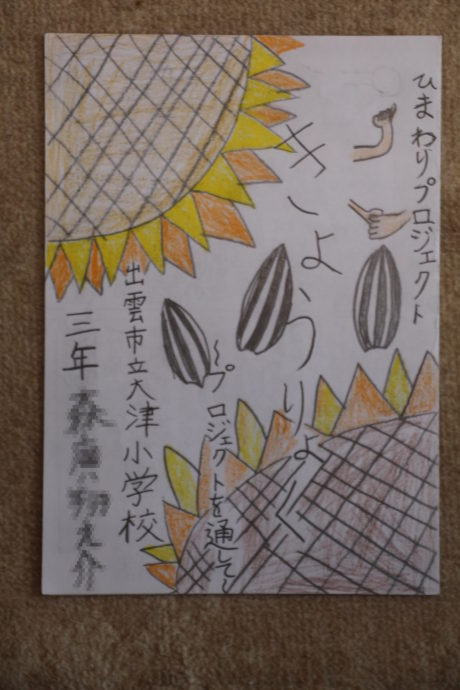 ひまわりプロジェクト
きょうりょく
～プロジェクトを通して～
出雲市立大津小学校
三年